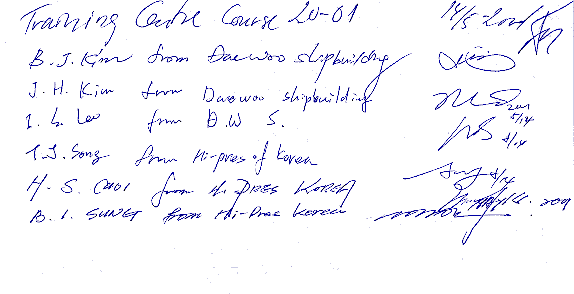 Training Centre Course 20-01 14/5-2001
B. J. Kim from Daewoo shipbuilding
J. H. Kim from Daewoo shipbuilding
I. S. Lee from D.W S. 5/14
T. J. Song from Hi-pres of Korea 5/14
H. S. CHOI from Hi PRES KOREA 5/14
B. I. SUNG from Hi-Pres Korea